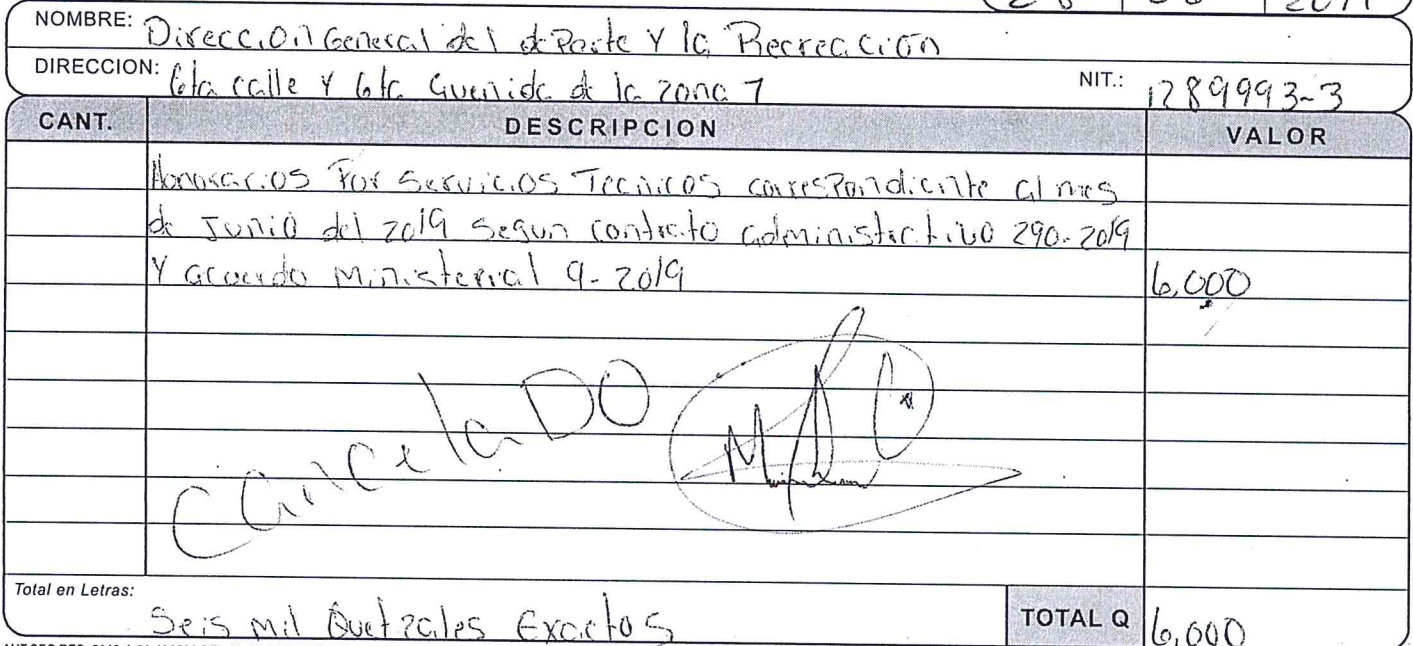 2019
NOMBRE: Dirección General del deporte Y la Recreación
DIRECCION: 6ta calle Y 6ta avenida de la zona 7 NIT.: 1289993-3
CANT. DESCRIPCION VALOR
Honorarios Por Servicios Tecnicos correspondiente al mes
de Junio del 2019 Segun contrato administrativo 290-2019
Y acuerdo Ministerial 9-2019 6,000
CancelaDO
Total en Letras: Seis Mil Quetzales Exactos TOTAL Q 6,000